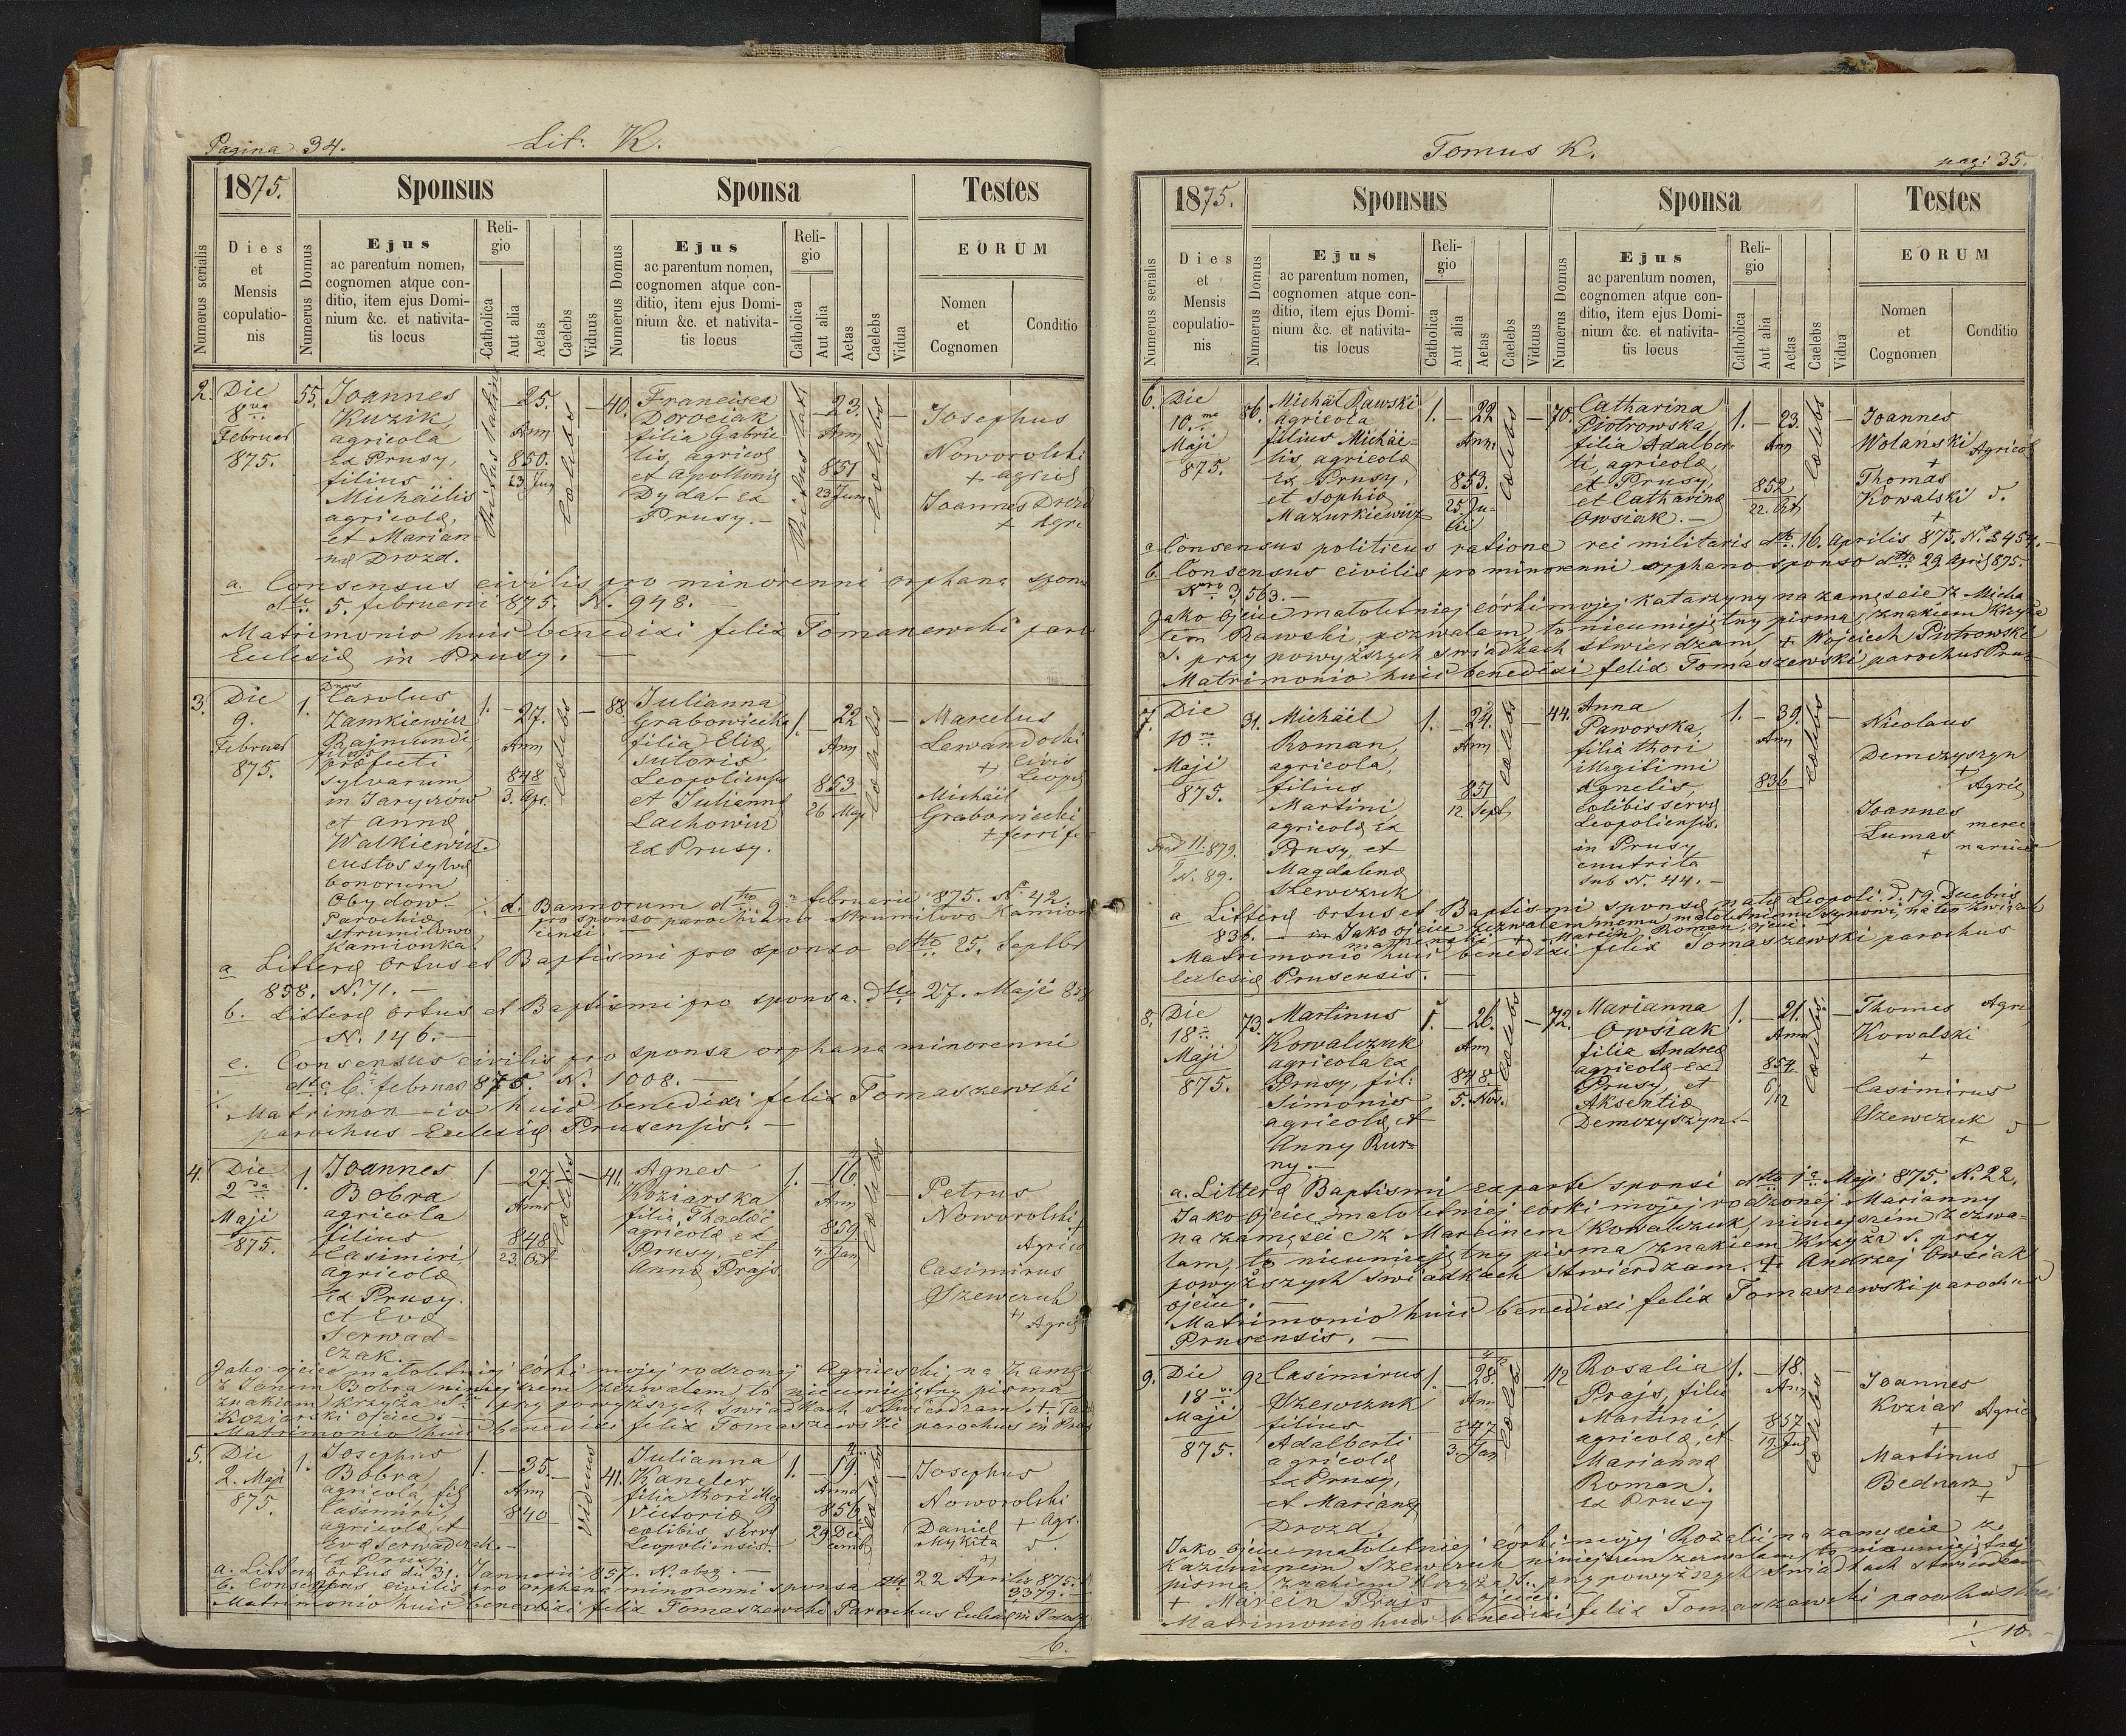 Pagina 34.
Lit. K.
1875.
Sponsus
Sponsa
Testes
Numerus serialis
Dies
et
Mensis
copulatio-
nis
Numerus Domus
Ejus
ac parentum nomen,
cognomen atque con-
ditio, item ejus Domi-
nium &c. et nativita-
tis locus
Reli-
gio
Catholica
Aut alia
Aetas
Caelebs
Viduus
Numerus Domus
Ejus
ac parentum nomen,
cognomen atque con-
ditio, item ejus Domi-
nium &c. et nativita-
tis locus
Reli-
gio
Catholica
Aut alia
Aetas
Caelebs
Vidua
EORUM
Nomen
et
Cognomen
Conditio
2.
Die
8va
Februar
875.
55.
Joannes
Kuzik,
agricola
Ex Prusy,
filius
Michaëlis
agricolæ,
et Marian-
næ Drozd.
Ritus latini
25.
Ann
850.
23 Jun
Cælebs
40.
Francisca
Dorociak
filia Gabrie
lis, agricol
et Apollonia
Dyda - Ex
Prusy. -
23.
Ann
851
23 Jun
Cælebs
Josephus
Noworolski
+ agricol
Joannes Drozd
+ Agri
a. Consensus civilis pro minorenni orphana sponsa
dtto 5. februarii 875. N. 948. -
Matrimonio huic benedixi felix Tomaszewski paro
Ecclesiæ in Prusy. -
3.
Die
9.
Februar
875.
1.
Carolus
Zamkiewicz
filius
Rajmundi
præfecti
sylvarum
in Jaryczów
et Annæ
Walkiewicz
custos sylvæ
bonorum
Obydow
Parochiæ
Strumilowo
Kamionka.
1.
27.
Ann
848
3. Apr.
Cælebs
88.
Julianna
Grabowiecka
filia Eliæ
sutoris
Leopoliensis
et Juliannæ
Lachowicz
Ex Prusy.
1.
22
Ann
853
26 Maji
Cælebs
Marcelus
Lewandoski
+ civis
Leopol
Michaël
Grabowiecki
+ ferri fa
d. Bannorum dtto 9a februarii 875. N. 42.
pro sponso parochiano Strumilovo Kamion
censi
a Litteræ ortus et Baptismi pro sponso dtto 25. Septbr
858. N. 71. -
b. Litteræ ortus et Baptismi pro sponsa. dtto 27. Maji 858
N. 146. -
c. Consensus civilis pro sponsa orphana minorenni
dtto 6. februar 875. N. 1008. -
Matrimonio huic benedixi felix Tomaszewski
parochus Ecclesiæ Prusensis. -
4.
Die
2da
Maji
875.
1.
Joannes
Bobra
agricola
filius
Casimiri,
agricolæ
Ex Prusy.
et Evæ
Serwad
czak. -
1
27.
Ann
848
23. Oct
Cælebs
41.
Agnes
Koziarska
filia Thadæi
agricolæ ex
Prusy, et
Annæ Prajs
1.
16.
Ann
859.
4. Jan
Cælebs
Petrus
Noworolski
Agrico
Casimirus
Szewczuk
+ Agric
Jako ojciec małoletniej córki mojej rodzonej Agnieszki, na zamęs
z Janem Bobra niniejszem zezwalam, to nieumiejętny pisma
znakiem Krzyża S. przy powyższych świadkach stwierdzam. + Tad
Koziarski ojciec. -
Matrimonio huic benedixi felix Tomaszewski parochus in Prus
5.
Die
2. Maji
875
1.
Josephus
Bobra
agricola, fil
Casimiri,
agricolæ, et
Evæ Serwadczak. -
Ex Prusy.
1.
35.
Ann
840
Viduus
41.
Julianna
Kancler,
filia thori illeg
Victoriæ
cælibis servæ
Leopoliensis.
1.
19.
Anno
856
29 Dec
embr
Cælebs
Josephus
Noworolski
+ Agr.
Daniel
Mykita
a. Litteræ ortus du 31. Januarii 857. N. absq. -
b. Consensus civilis pro orphana minorenni sponsa dtto 22 Aprilis 875.
2379. -
Matrimonio huic benedixi felix Tomaszewski Parochus Ecclesiæ in Prusy
6.
Tomus K.
pag: 35.
1875.
Sponsus
Sponsa
Testes
Numerus serialis
Dies
et
Mensis
copulatio-
nis
Numerus Domus
Ejus
ac parentum nomen,
cognomen atque con-
ditio, item ejus Domi-
nium &c. et nativita-
tis locus
Reli-
gio
Catholica
Aut alia
Aetas
Caelebs
Viduus
Numerus Domus
Ejus
ac parentum nomen,
cognomen atque con-
ditio, item ejus Domi-
nium &c. et nativita-
tis locus
Reli-
gio
Catholica
Aut alia
Aetas
Caelebs
Vidua
EORUM
Nomen
et
Cognomen
Conditio
6.
Die
10.ma
Maji
875.
86.
Michał Rawski
Agricola
filius Michäe-
lis, agricolæ
Ex Prusy,
et Sophiæ
Mazurkiewicz
1.
22
Ann
853.
25 Ju-
lii
Cælebs
70.
Catharina
Piotrowska,
filia Adalber-
ti, agricolæ,
ex Prusy,
et Catharinæ
Owsiak. -
1.
23.
Ann
852
22. Oct
Cælebs
Joannes
Wolanski
+ Agricol
Thomas
Kowalski
+
a Consensus politicus ratione rei militaris dtto 16. Aprilis 875. N. 3454. -
b. Consensus civilis pro minorenni orphano sponso dtto 29 April 875.
Nro 3563. -
Jako Ojciec małoletniej córki mojej Katarzyny na zamęscie z Micha
łem Rawski, pozwalam, to nieumiejętny pisma, znakiem Krzyża
S. przy powyższych świadkach stwierdzam, + Wojciech Piotrowski
Matrimonio huic benedixi felix Tomaszewski parochus Prus
7.
Die
10ma
Maji
875.
31.
Michäel
Roman,
agricola,
filius
Martini
agricolæ ex
Prusy, et
Magdalenæ
Szewczuk
11.879.
N. 89.
1.
24.
Ann
851
12 Sept
Cælebs
44.
Anna
Paworska,
filia thori
illegitimi
Agnetis,
cælibis servæ
Leopoliensis.
in Prusy
enutrita
sub N. 44. -
1.
39.
Ann
836
Cælebs
Nicolaus
Demczyszyn
+
Agric
Joannes
Lumas
+
merce
narius
a Litteræ ortus et Baptismi sponsæ natæ Leopoli d. 19 Decebris
836. - Jako ojciec zezwalam memu małoletniemu synowi, na ten związek
małżenski + Marcin Roman, ojciec -
Matrimonio huic benedixi felix Tomaszewski parochus
Ecclesiæ Prusensis. -
8.
Die
18a
Maji
875.
73.
Martinus
Kowalczuk
agricola ex
Prusy, fil:
Simonis
agricolæ, et
Anny Rur-
ny. -
1.
26.
Ann
848
5. Nov.
Cælebs
72.
Marianna
Owsiak
filia Andreæ
agricolæ ex
Prusy, et
Aksentiæ
Demczyszyn. -
1.
21.
Ann
854
6/12
Cælebs
Thomas
Kowalski
+
Agri
Casimirus
Szewczuk
+
a. Litteræ Baptismi exparte sponsi dtto 1a Maji 875. N. 22.
Jako Ojciec małoletniej córki mojej rodzonej Marianny
na zamęście z Marcinem Kowalczuk, niniejszém zezwa-
lam, to nieumiejętny pisma znakiem Krzyża S. przy
powyższych świadkach stwierdzam. + Andrzej Owsiak
ojciec. -
Matrimonio huic benedixi felix Tomaszewski parochus
Prusensis. -
9.
Die
18va
Maji
875.
92
Casimirus
Szewczuk
filius
Adalberti
agricolæ
Ex Prusy,
et Mariannæ
Drozd.
1.
28.
Ann
847
3. Jan
Cælebs
42
Rosalia
Prajs, filia
Martini,
agricolæ, et
Mariannæ
Roman.
Ex Prusy
1.
18.
Ann
857
19. Jul
Cælebs
Joannes
Koziar
+
Agric
Martinus
Bednarz
+
Jako Ojciec małoletniej córki mojej Rozalii na zamęscie z
Kazimirzem Szewczuk niniejszem zezwalam, to nieumiejętny
pisma, znakiem Krzyża S. przy powyższych świadkach stwierdzam
+ Marcin Prajs ojciec.
Matrimonio huic benedixi felix Tomaszewski parochus
10.